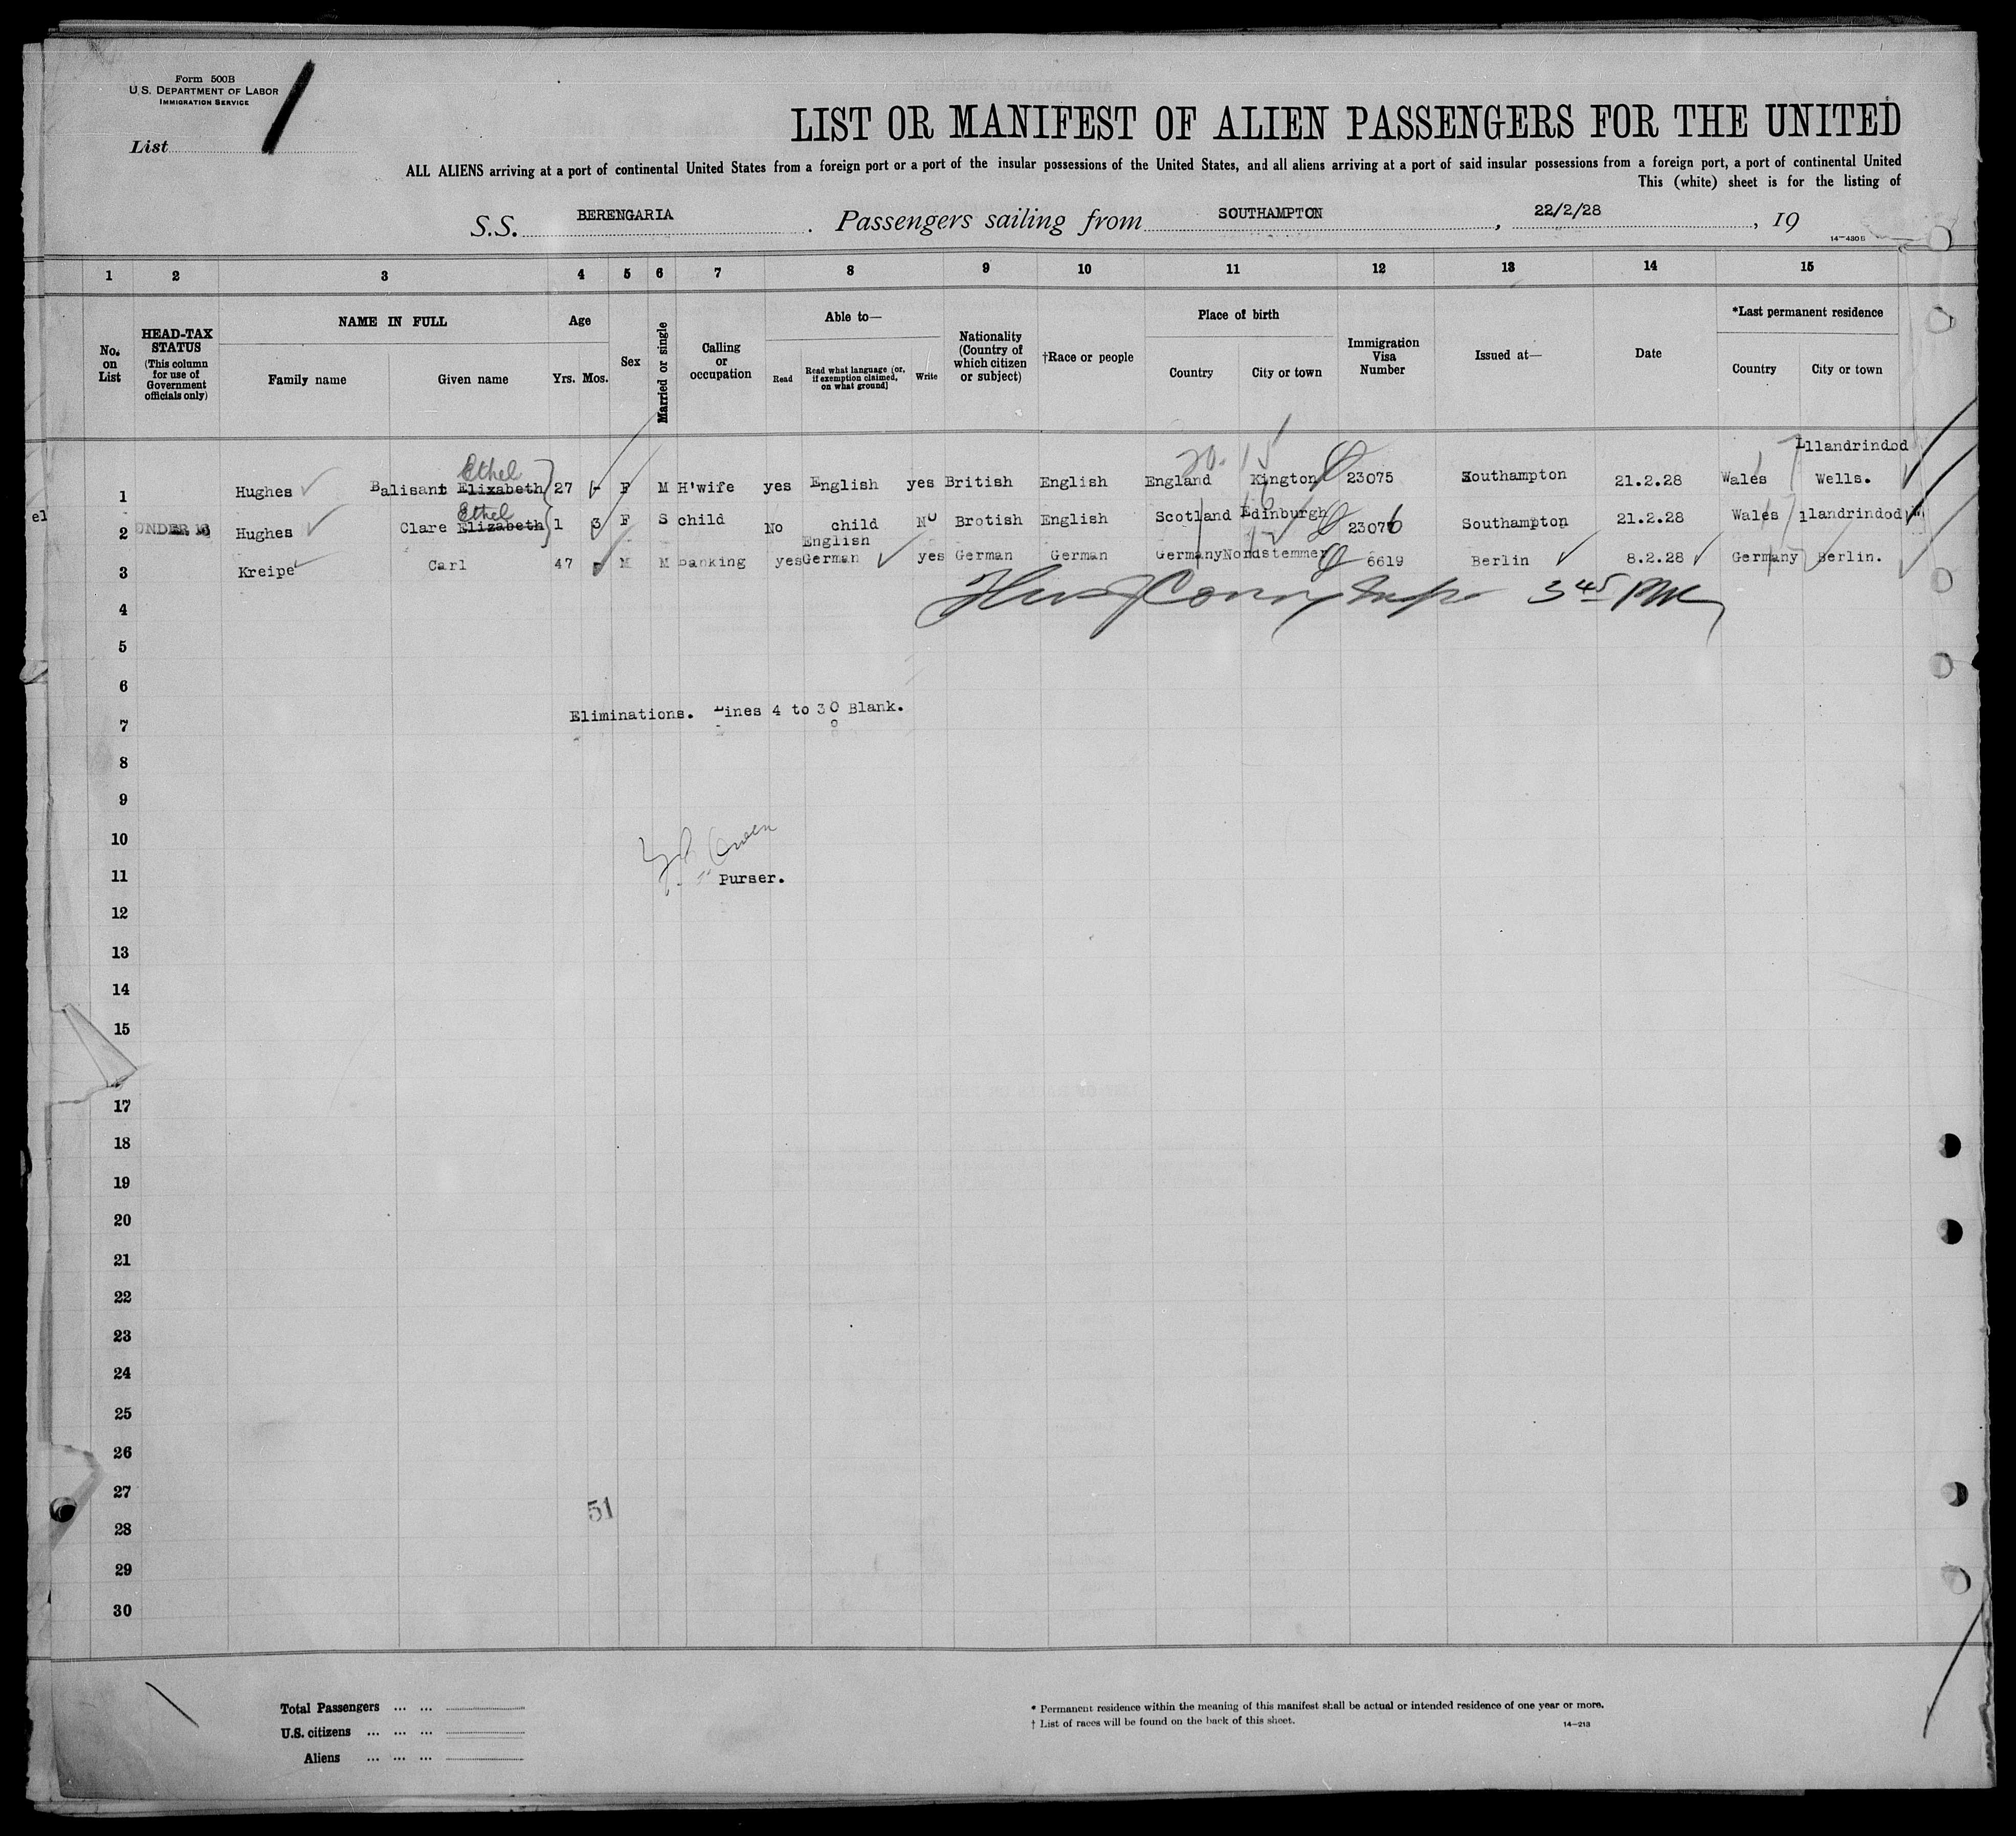 Form 500B
U.S. DEPARTMENT OF LABOR
IMMIGRATION SERVICE
List 1
LIST OR MANIFEST OF ALIEN PASSENGERS FOR THE UNITED
ALL ALIENS arriving at a port of continental United States from a foreign port or a port of the insular possessions of the United States, and all aliens arriving at a port of said insular possessions from a foreign port, a port of continental United
This (white) sheet is for the listing of
S.S. BERENGARIA . Passengers sailing from SOUTHAMPTON , 22/2/28 , 19
14—430 B
1 2 3 4 5 6 7 8 9 10 11 12 13 14 15
No. on List
HEAD-TAX STATUS (This column for use of Government officials only)
NAME IN FULL
Family name Given name
Age
Yrs. Mos.
Sex
Married or single
Calling or occupation
Able to—
Read Read what language (or, if exemption claimed, on what ground) Write
Nationality (Country of which citizen or subject)
†Race or people
Place of birth
Country City or town
Immigration Visa Number
Issued at—
Date
*Last permanent residence
Country City or town
1 Hughes Balisant Elizabeth Ethel 27 - F M H'wife yes English yes British English England Kington 23075 Southampton 21.2.28 Wales Lllandrindod Wells.
el
2 UNDER 16 Hughes Clare Elizabeth Ethel 1 3 F S child No child No Brotish English Scotland Edinburgh 23076 Southampton 21.2.28 Wales llandrindod W
3 Kreipe Carl 47 - M M banking yes English German yes German German Germany Nordstemmen 6619 Berlin 8.2.28 Germany Berlin.
3 45 PM
4
5
6
7
Eliminations. Lines 4 to 30 Blank.
8
9
10
11
Purser.
12
13
14
15
17
18
19
20
21
22
23
24
25
26
27
51
28
29
30
Total Passengers ... ...
U.S. citizens ... ... ...
Aliens ... ... ...
* Permanent residence within the meaning of this manifest shall be actual or intended residence of one year or more.
† List of races will be found on the back of this sheet.
14—213